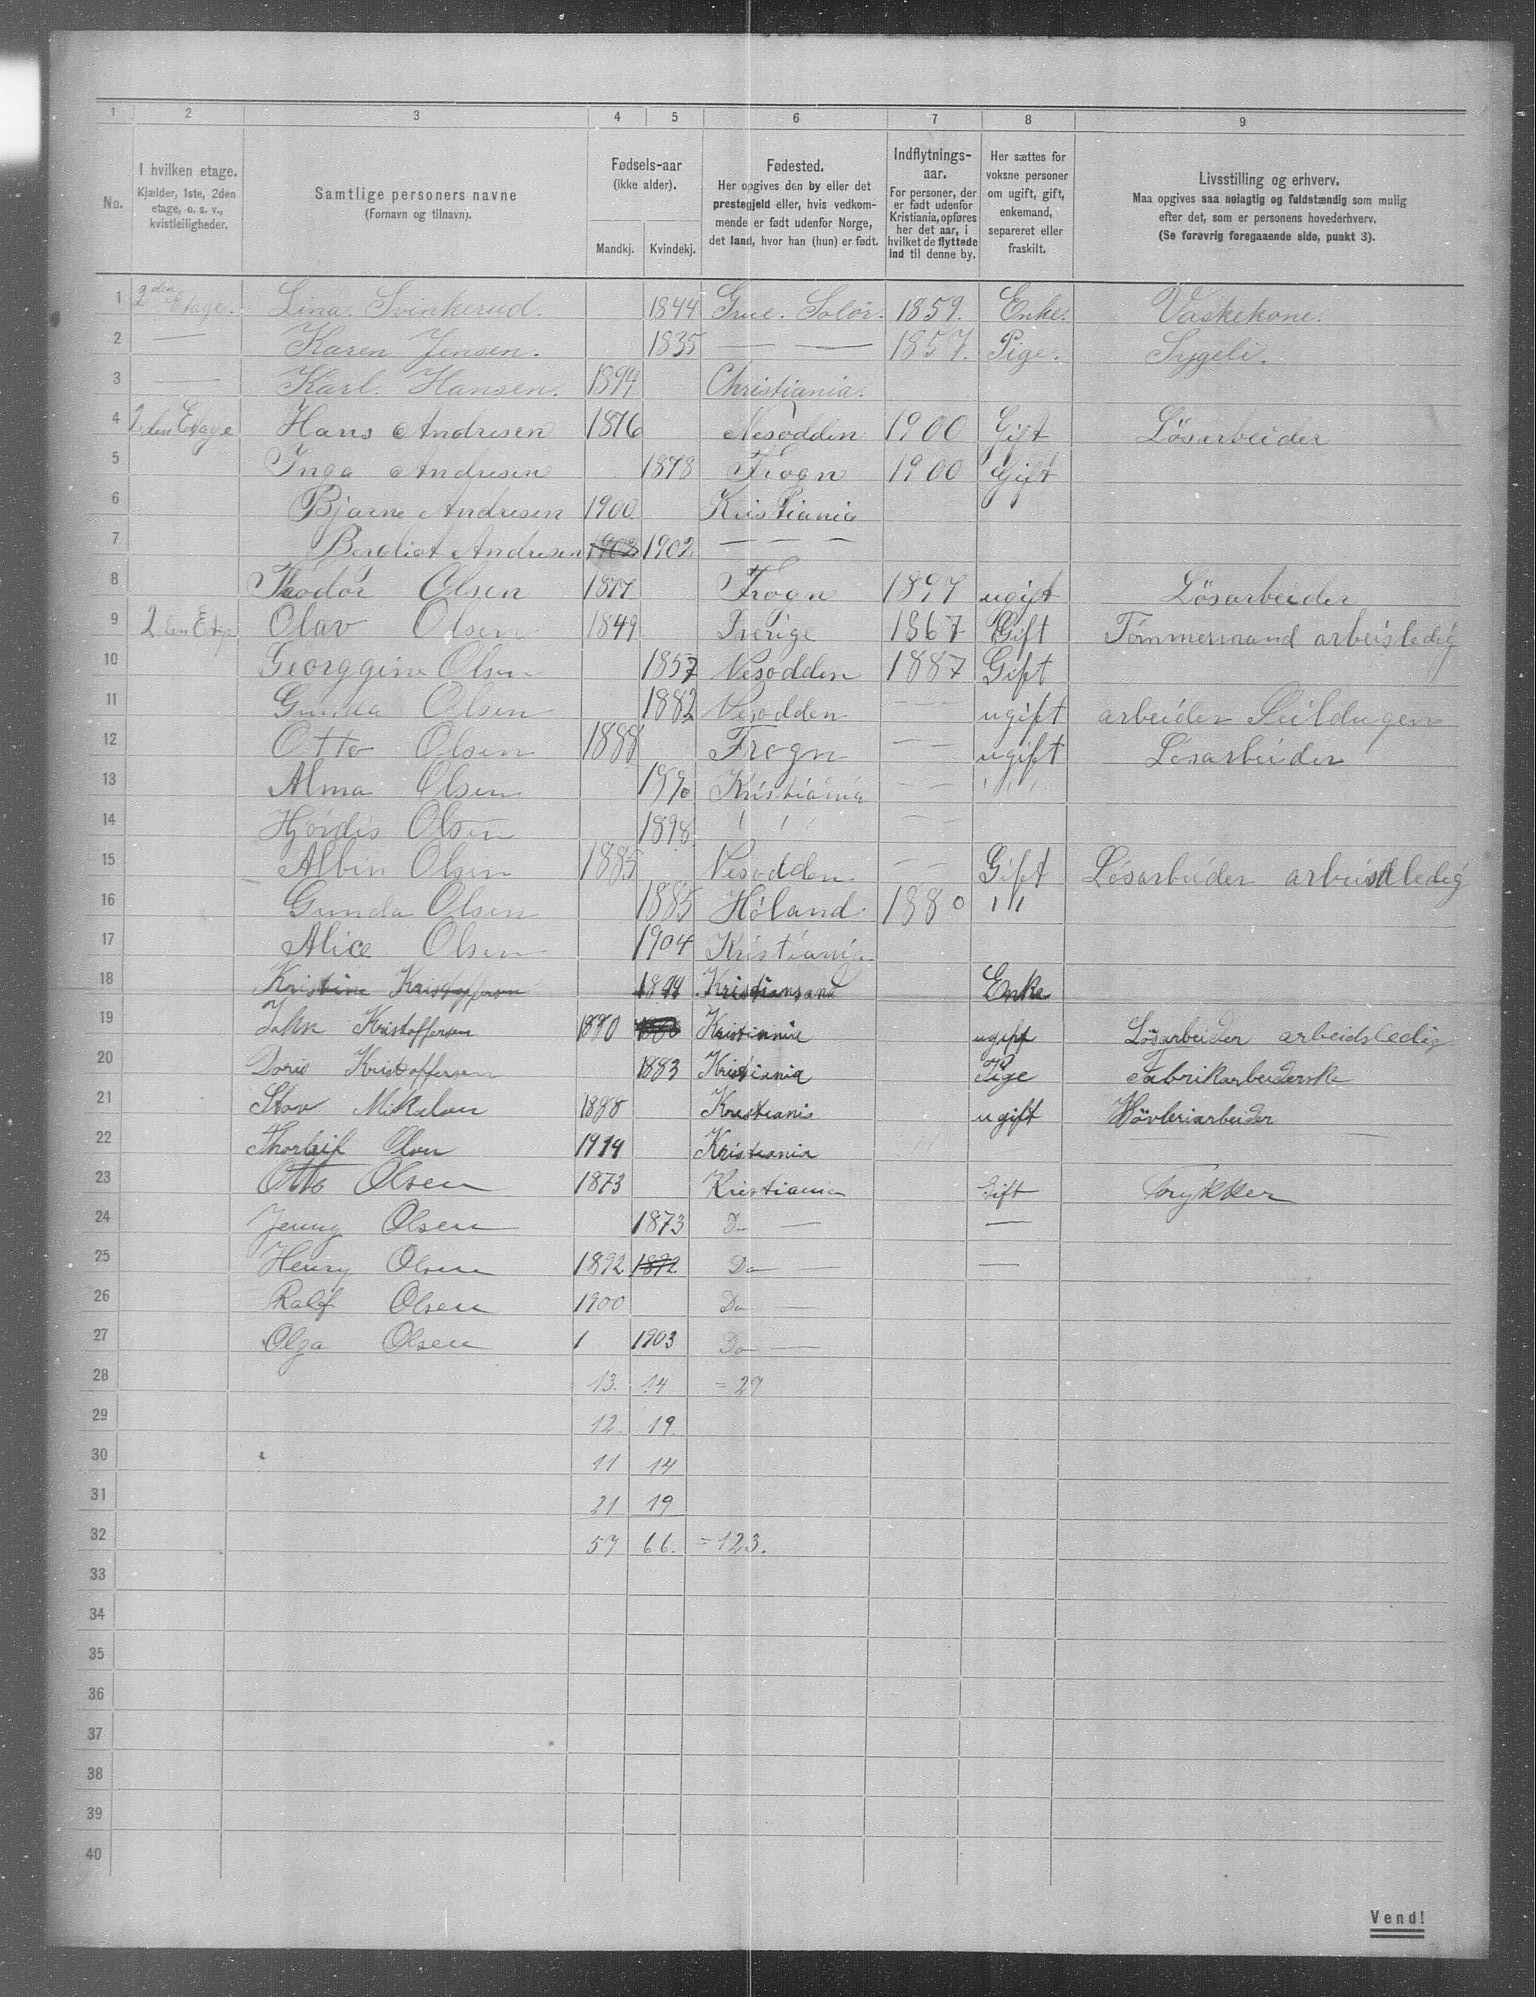 1 2 3 4 5 6 7 8 9
No.
I hvilken etage.
Kjælder, 1ste, 2den
etage, o. s. v.,
kvistleiligheder.
Samtlige personers navne
(Fornavn og tilnavn).
Fødsels-aar
(ikke alder).
Mandkj. Kvindekj.
Fødested.
Her opgives den by eller det
prestegjeld eller, hvis vedkom-
mende er født udenfor Norge,
det land, hvor han (hun) er født.
Indflytnings-
aar.
For personer, der
er født udenfor
Kristiania, opføres
her det aar, i
hvilket de flyttede
ind til denne by.
Her sættes for
voksne personer
om ugift, gift,
enkemand,
separeret eller
fraskilt.
Livsstilling og erhverv.
Maa opgives saa nøiagtig og fuldstændig som mulig
efter det, som er personens hovederhverv.
(Se forøvrig foregaaende side, punkt 3).
1 2den Etage. Lina Svinkerud. 1844 Grue. Solör. 1859. Enke. Vaskekone.
2 — Karen Jensen. 1835 — — 1857. Pige. Sygeli.
3 — Karl. Hansen. 1894 Christiania.
4 2den Etage Hans Andresen 1876 Nesodden 1900 Gift Lösarbeider
5 Inga Andresen 1878 Frogn 1900 Gift
6 Bjarne Andresen 1900 Kristiania
7 Bergliot Andresen 1902 1902 — — —
8 Thodor Olsen 1877 Frogn 1897 ugift Lösarbeider
9 2den Etage Olav Olsen 1849 Sverige 1867 Gift Tömmermand arbeisledig
10 Georggine Olsen 1857 Nesodden 1887 Gift
11 Gunda Olsen 1882 Nesodden — — ugift arbeider Seildugen
12 Otto Olsen 1888 Frogn — — ugift Losarbeider
13 Alma Olsen 1890 Kristiania — — " "
14 Hjördis Olsen 1898 " " — —
15 Albin Olsen 1885 Nesodden. — — Gift Lösarbeider arbeisledig
16 Gunda Olsen 1885 Höland 1880 " "
17 Alice Olsen 1904 Kristiania
18 Kristine Kristoffersen Kristiansand Enke
19 Kristoffersen 1880 Kristiania ugift Lösarbeider arbeidsledig
20 Doris Kristoffersen 1883 Kristiania Pige Fabrikarbeiderske
21 1898 Kristiania ugift Hövleriarbeider
22 Thorleif Olsen Kristiania
23 Otto Olsen 1873 Kristiania Gift Trykker
24 Jenny Olsen 1873 Do — —
25 Henry Olsen 1892 1892 Do — —
26 Ralf Olsen 1900 Do —
27 Olga Olsen 1 1903 Do —
28 13. 14 = 27
29 12. 19.
30 11 14
31 21 19
32 57 66. = 123.
33
34
35
36
37
38
39
40
Vend!